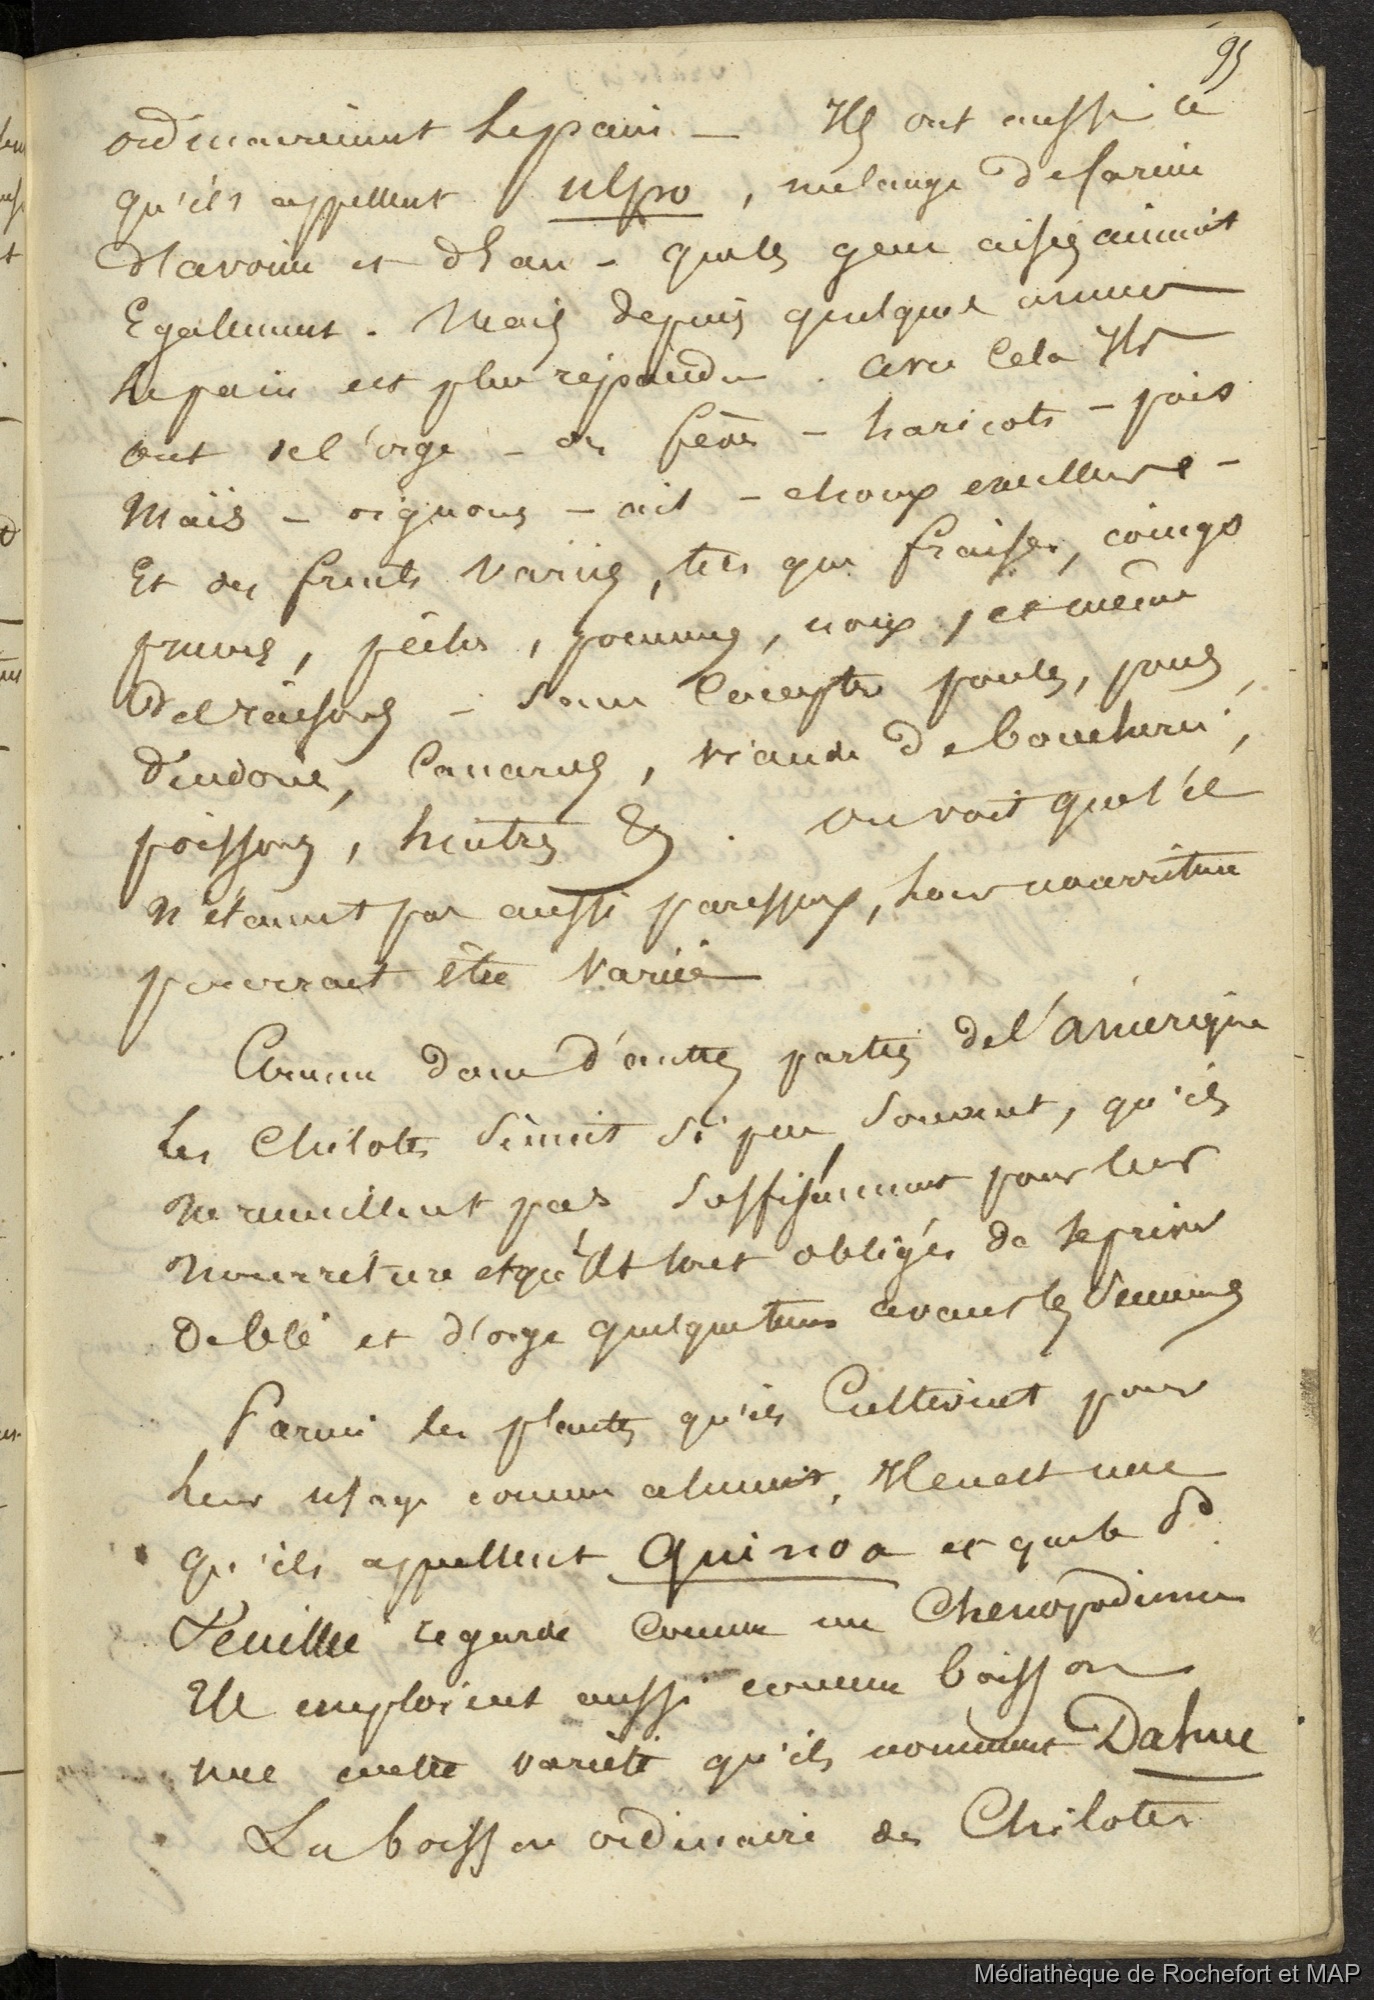 95
ordinairement le pain – Ils ont aussi ce
qu'ils appellent ulpo, mélange de farine
d'avoine et d'eau – que les gens aisés aiment
Egalement. Mais depuis quelques années
le pain est plus répandu. avec cela Ils
ont de l'orge – des fèves – haricots – pois
Maïs – oignons – ail – choux excellents –
Et des fruits variés, tels que fraises, coings
prunes, pêches, pommes, noix, et même
Des raisons – Sans compter poules, porcs,
dindons, canards, viande de boucherie,
poissons, huitres &. on voit que s'ils
n'étaient pas aussi paresseux, leur nourriture
pourrait être variée
Comme dans d'autres parties de l'amérique
les Chilotes sèment si peu souvent, qu'ils
ne recueillent pas suffisamment pour leur
nourriture et qu'ils sont obligés de se priver
de blé et d'orge quelque tems avant les semailles
Parmi les plantes qu'ils cultivent pour
leur usage comme aliment, Il en est une
qu'ils appellent Quinoa et que le P.
Feuillée regarde comme un Chenopodium
Ils emploient aussi comme boisson
une variété qu'ils nomment Dahue
La boisson ordinaire des Chilotes
Médiathèque de Rochefort et MAP